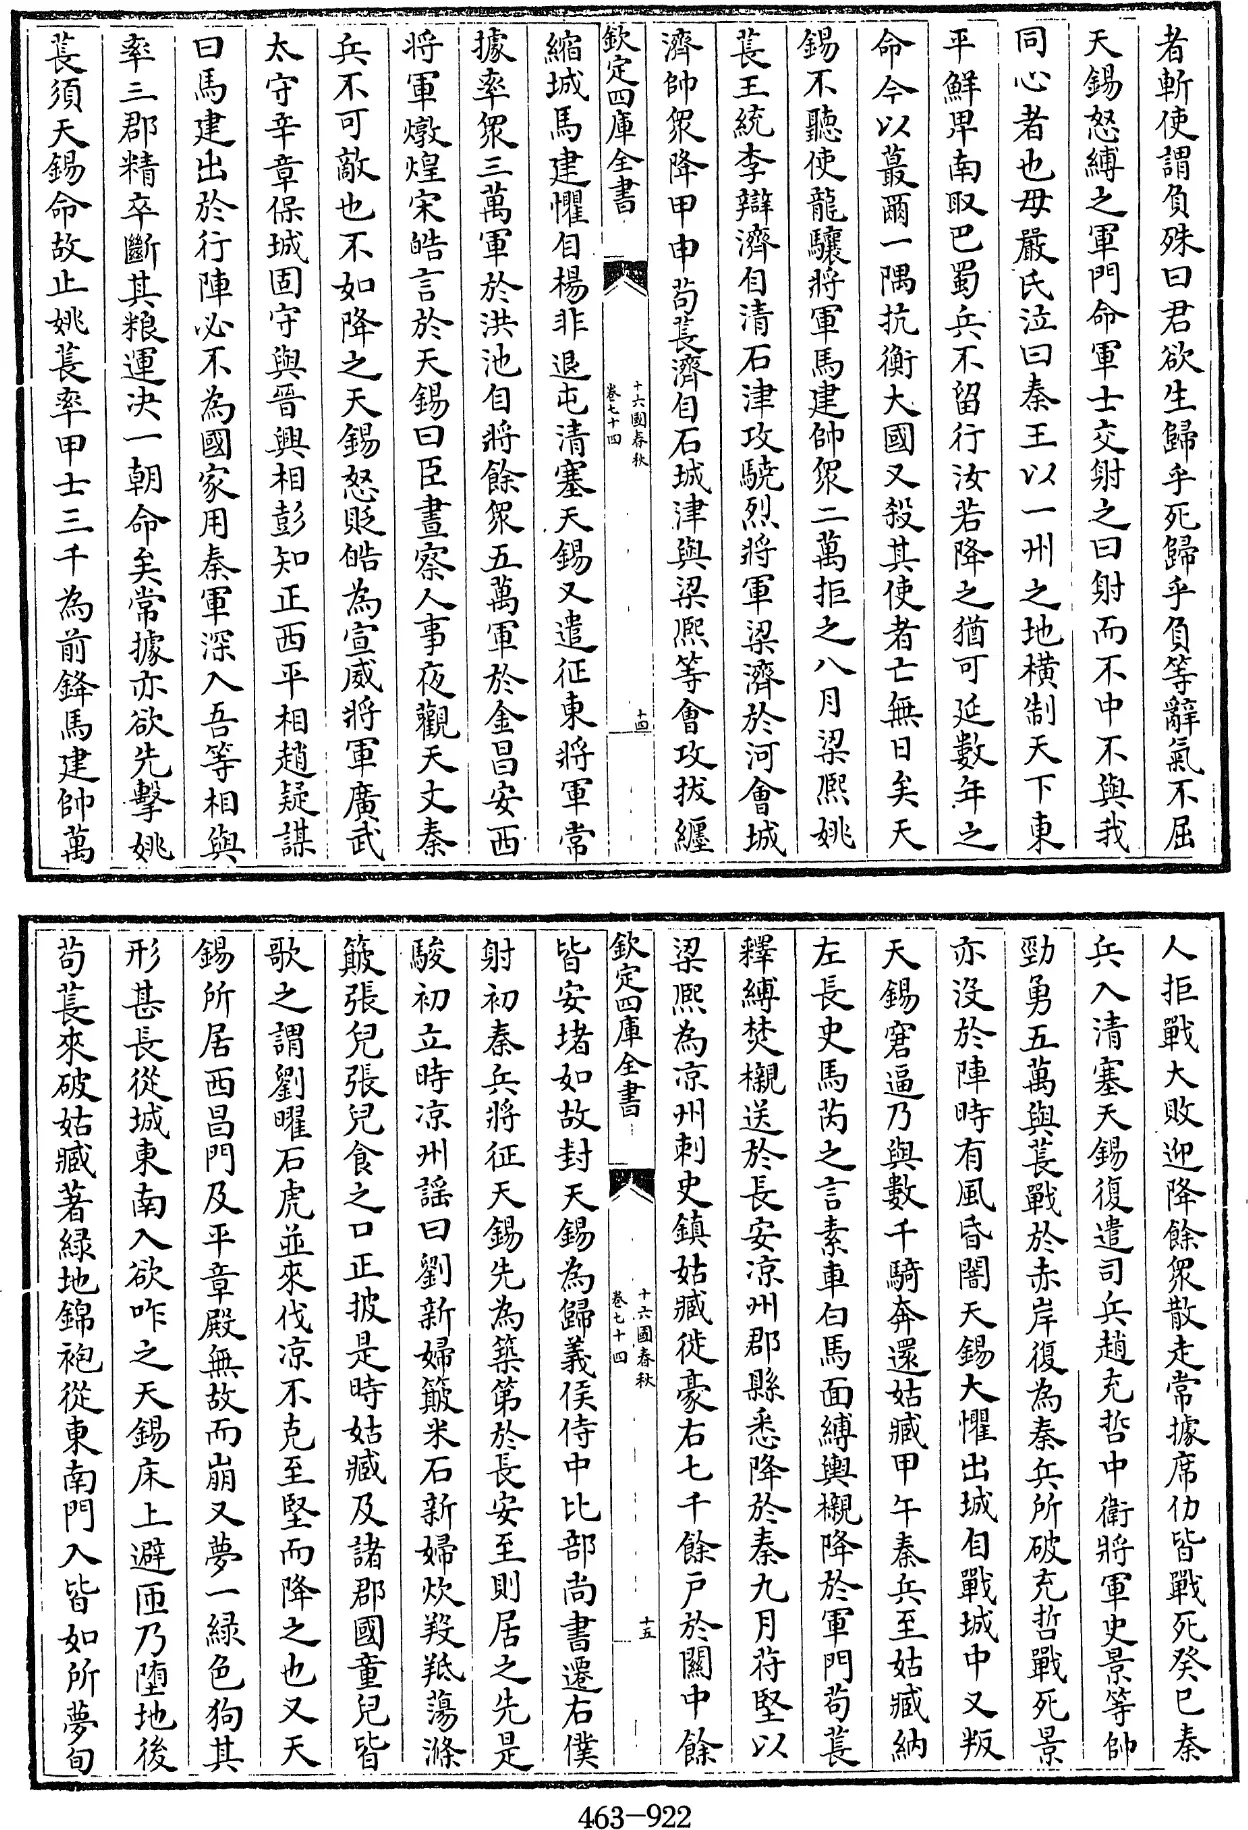 者斬使謂負殊曰君欲生歸乎死歸乎負等辭氣不屈
天錫怒縛之軍門命軍士交射之曰射而不中不與我
同心者也毋嚴氏泣曰秦王以一州之地橫制天下東
平鮮卑南取巴蜀兵不留行汝若降之猶可延數年之
命今以蕞爾一隅抗衡大國又殺其使者亡無日矣天
錫不聽使龍驤將軍馬建帥衆二萬拒之八月梁熙姚
萇王統李辯濟自清石津攻驍烈將軍梁濟於河會城
濟帥衆降甲申苟萇濟自石城津與梁熙等會攻拔纏
欽定四庫全書
十六國春秋
卷七十四
十四
縮城馬建懼自楊非退屯清塞天錫又遣征東將軍常
據率衆三萬軍於洪池自將餘衆五萬軍於金昌安西
將軍燉煌宋皓言於天錫曰臣晝察人事夜觀天文秦
兵不可敵也不如降之天錫怒貶皓為宣威將軍廣武
太守辛章保城固守與晉興相彭知正西平相趙疑謀
曰馬建出於行陣必不為國家用秦軍深入吾等相與
率三郡精卒斷其粮運决一朝命矣常據亦欲先擊姚
萇須天錫命故止姚萇率甲士三千為前鋒馬建帥萬
人拒戰大敗迎降餘衆散走常據席仂皆戰死癸巳秦
兵入清塞天錫復遣司兵趙充哲中衛將軍史景等帥
勁勇五萬與萇戰於赤岸復為秦兵所破充哲戰死景
亦沒於陣時有風昏闇天錫大懼出城自戰城中又叛
天錫窘逼乃與數千騎奔還姑臧甲午秦兵至姑臧納
左長史馬芮之言素車白馬面縛輿櫬降於軍門苟萇
釋縛焚櫬送於長安凉州郡縣悉降於秦九月苻堅以
梁熙為凉州刺史鎮姑臧徙豪右七千餘戶於關中餘
欽定四庫全書
十六國春秋
卷七十四
十五
皆安堵如故封天錫為歸義侯侍中比部尚書遷右僕
射初秦兵將征天錫先為築第於長安至則居之先是
駿初立時凉州謡曰劉新婦簸米石新婦炊羖羝蕩滌
簸張兒張兒食之口正披是時姑臧及諸郡國童兒皆
歌之謂劉曜石虎並來伐凉不克至堅而降之也又天
錫所居西昌門及平章殿無故而崩又夢一綠色狗其
形甚長從城東南入欲咋之天錫床上避匝乃墮地後
苟萇來破姑臧著緑地錦袍從東南門入皆如所夢旬
463-922